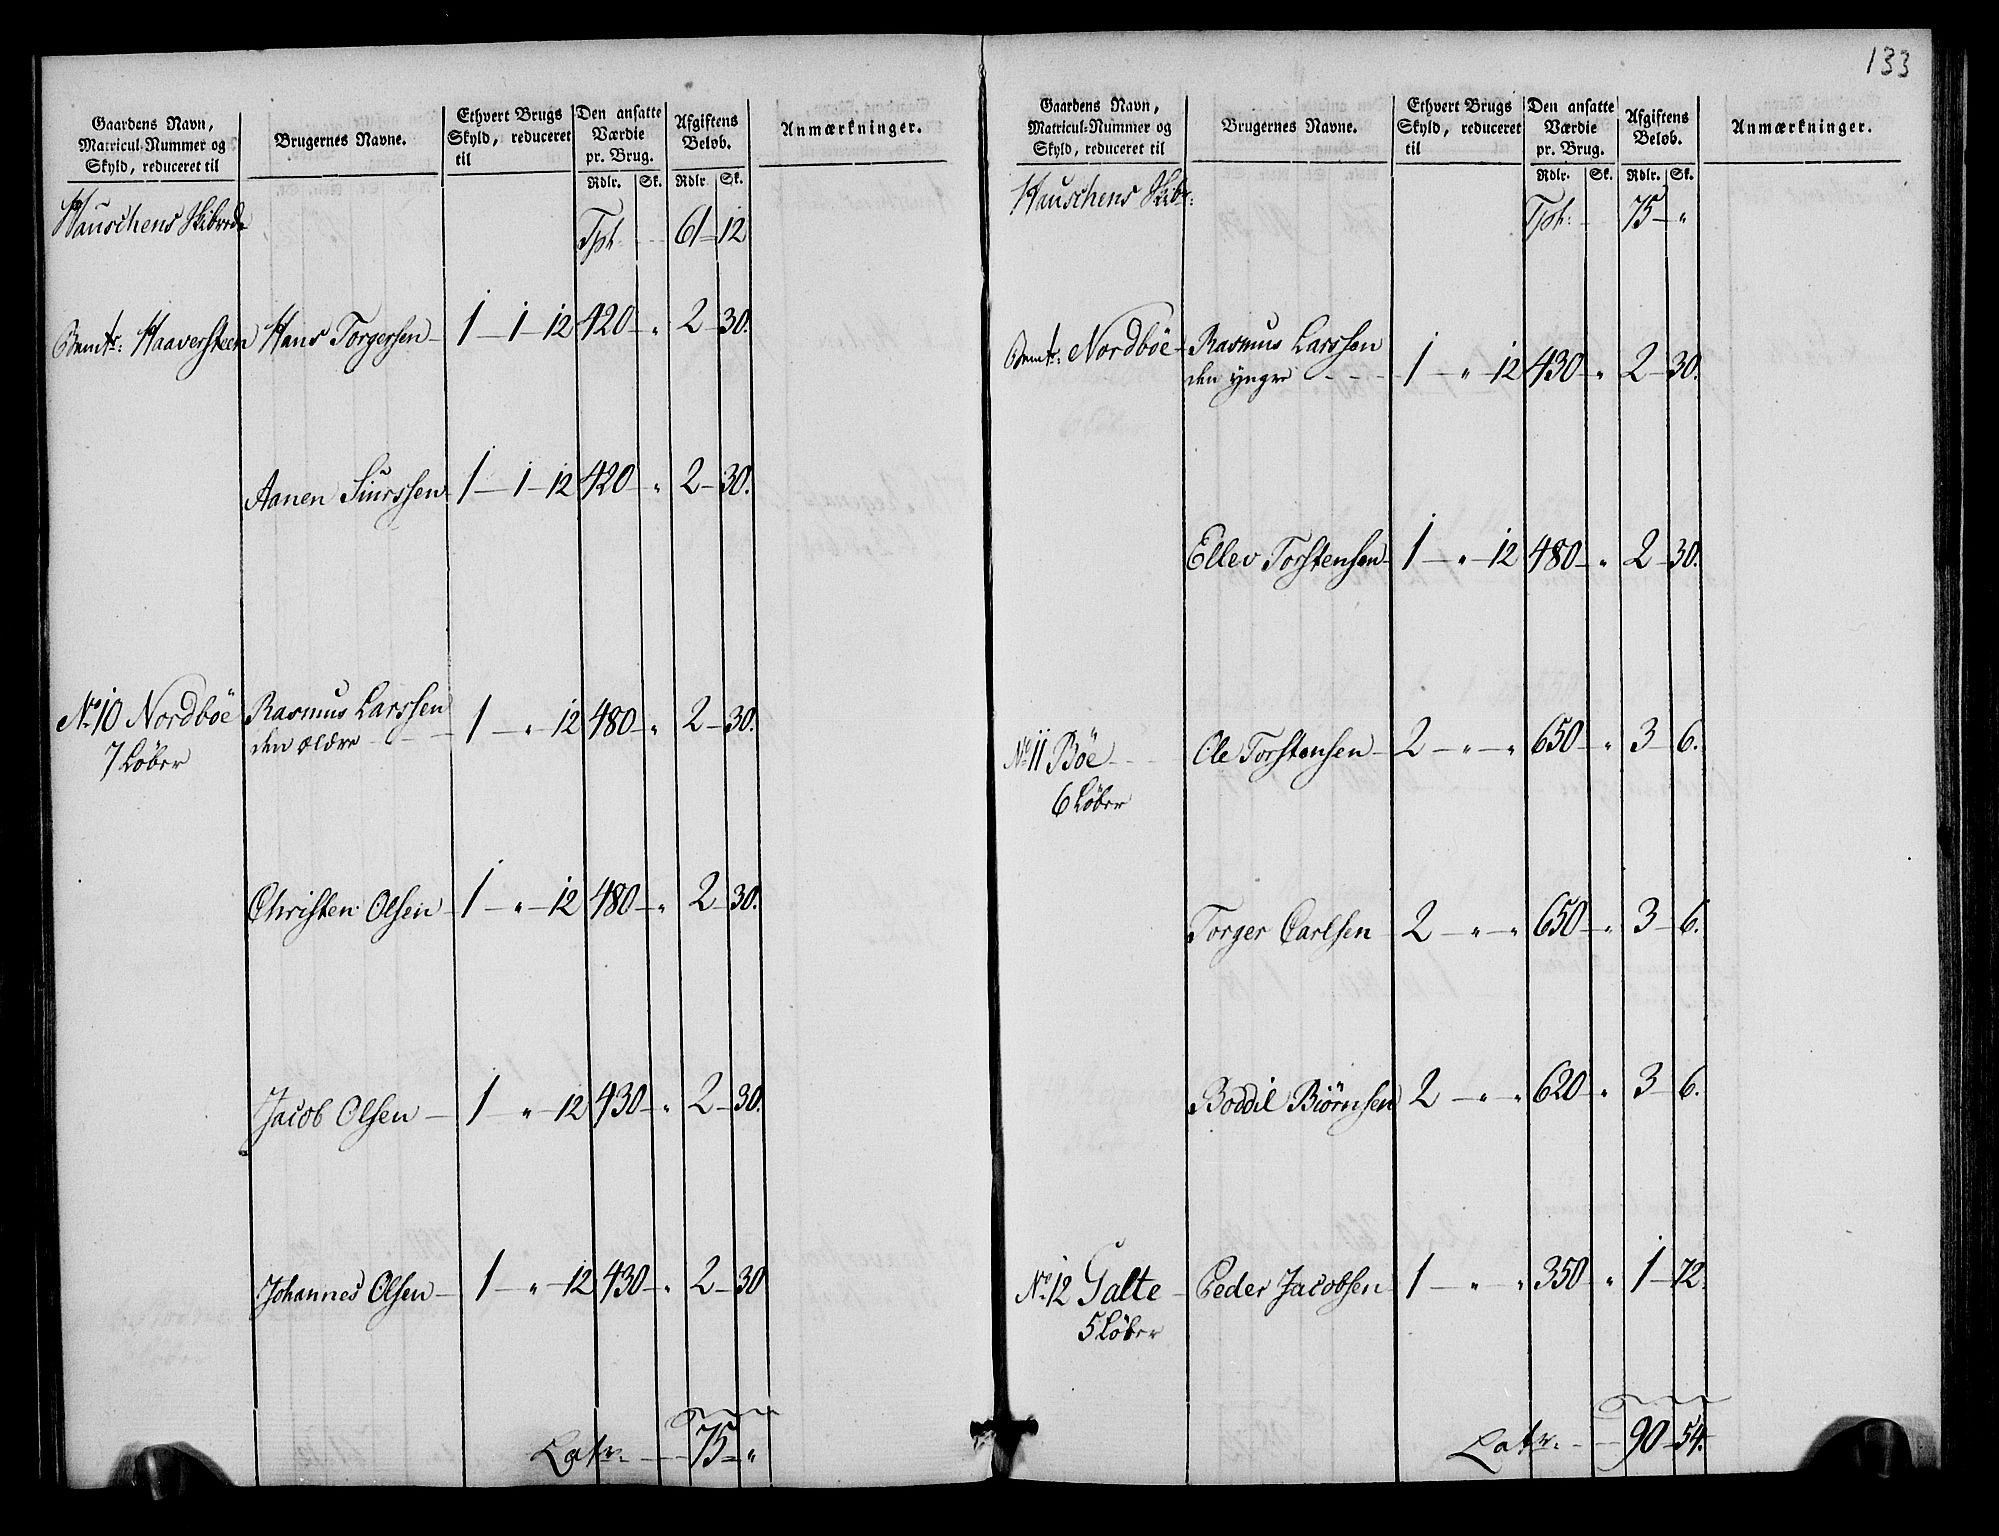 133
Gaardens Navn, Matricul-Nummer og Skyld, reduceret til | Brugernes Navne. | Ethvert Brugs Skyld, reduceret til | Den ansatte Værdie pr. Brug. Rdlr. Sk. | Afgiftens Beløb. Rdlr. Sk. | Anmærkninger.
Hauschens Skibrede Tpt: 61 — 12
Bemte: Haaversteen Hans Torgersen — 1 — 1 — 12 420 — „ 2 — 30.
Aanen Siurssen — 1 — 1 — 12 420 — „ 2 — 30.
No. 10 Nordbøe Rasmus Larssen
7 Løber den ældre — 1 — „ — 12 480 — „ 2 — 30.
Christen Olsen — 1 — „ — 12 480 — „ 2 — 30.
Jacob Olsen — 1 — „ — 12 430 — „ 2 — 30.
Johannes Olsen — 1 — „ — 12 430 — „ 2 — 30
Latr. 75 — „
Gaardens Navn, Matricul-Nummer og Skyld, reduceret til | Brugernes Navne. | Ethvert Brugs Skyld, reduceret til | Den ansatte Værdie pr. Brug. Rdlr. Sk. | Afgiftens Beløb. Rdlr. Sk. | Anmærkninger.
Hauschens Skibr: Tpt: 75 — „
Bemte: Nordbøe — Rasmus Larssen
den yngre — 1 — „ — 12 430 — „ 2 — 30.
Ellev Torstensen — 1 — „ — 12 480 — „ 2 — 30.
No. 11 Bøe Ole Torstensen — 2 — „ — „ 650 — „ 3 — 6.
6 Løber
Torger Carlsen — 2 — „ — „ 650 — „ 3 — 6.
Boddil Biørnsen 2 — „ — „ 620 — „ 3 — 6.
No. 12 Galte — Peder Jacobsen — 1 — „ — „ 350 „ 1 — 72.
5 Løber
Latr. 90 — 54.